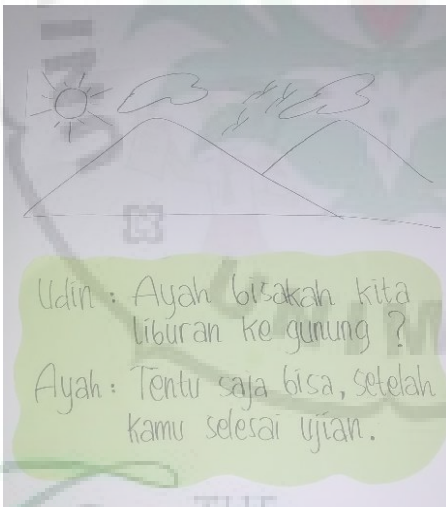 Udin : Ayah bisakah kita
liburan ke gunung ?
Ayah : Tentu saja bisa, setelah
kamu selesai ujian.